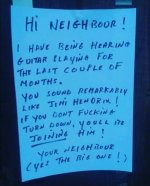 HI NEIGHBOUR!
I HAVE BEING HEARING
GUITAR PLAYING FOR
THE LAST COUPLE OF
MONTHS.
YOU SOUND REMARKABLY
LIKE JIMI HENDRIX!
IF YOU DONT FUCKING
TURN DOWN, YOU'LL BE
JOINING HIM!
YOUR NEIGHBOUR
(YES THE BIG ONE!)